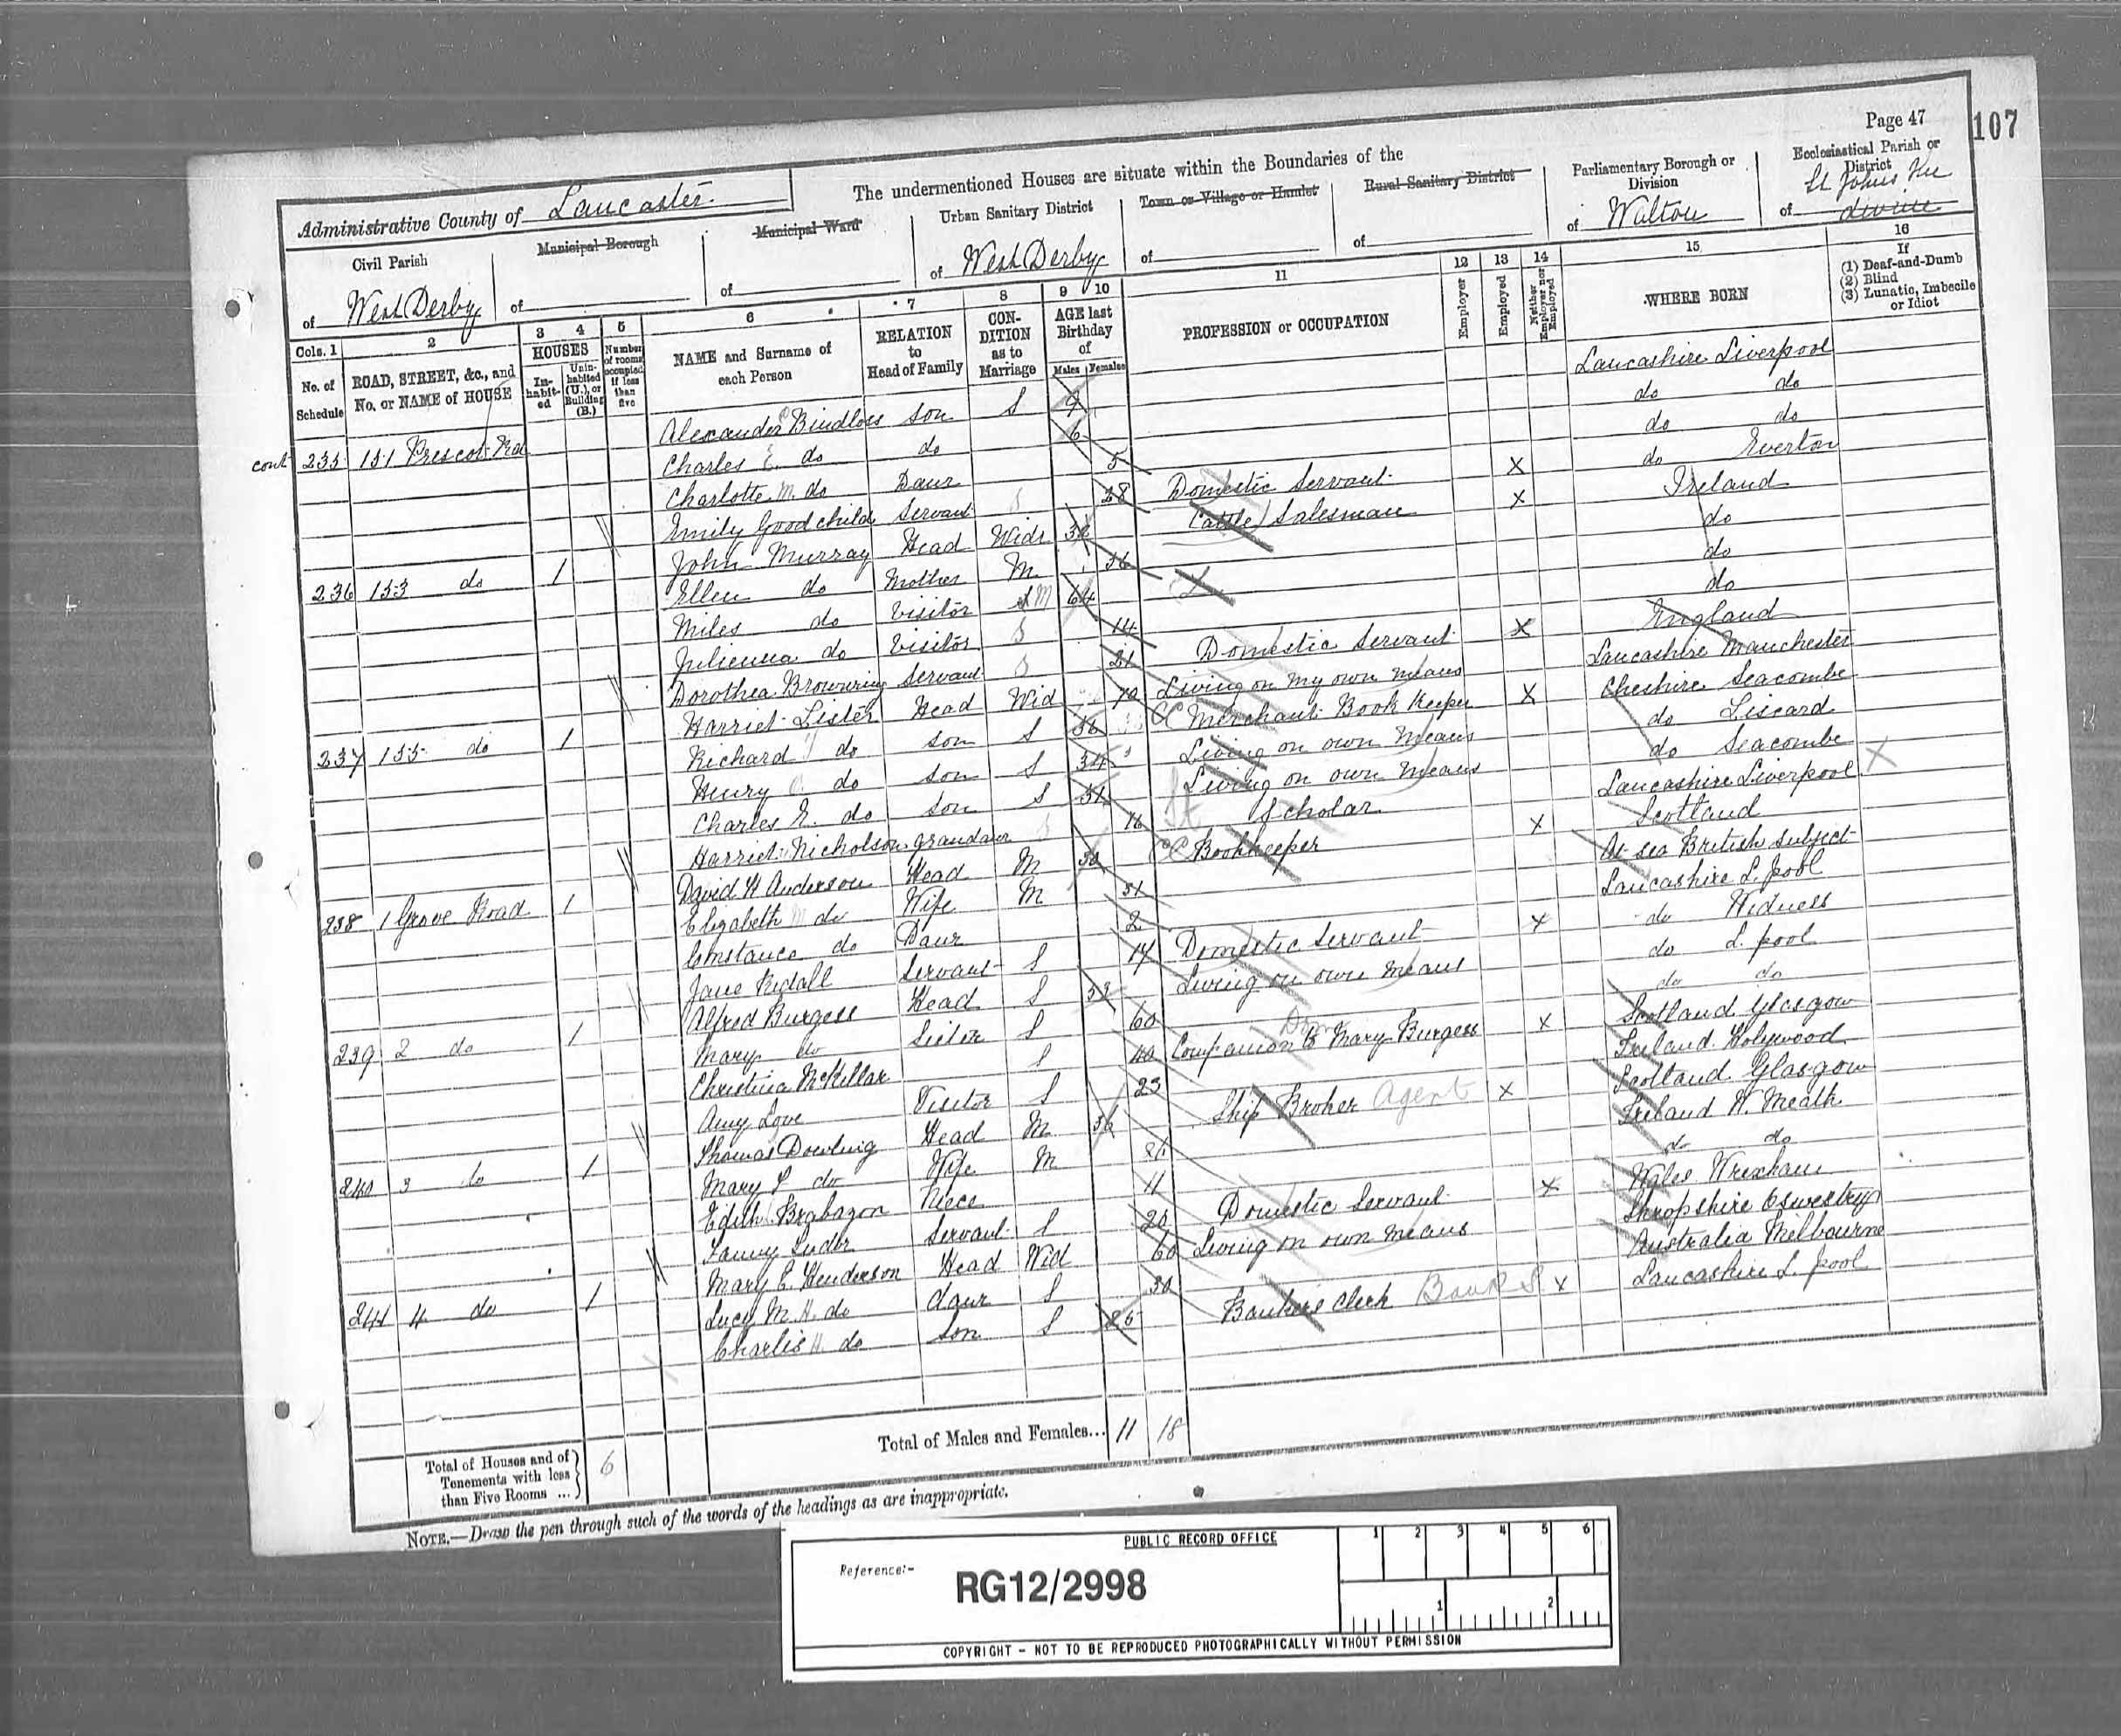 Page 47
107
The undermentioned Houses are situate within the Boundaries of the
Administrative County of Lancaster
Civil Parish
of West Derby
Municipal Borough
of
Municipal Ward
of
Urban Sanitary District
of West Derby
Town or Village or Hamlet
of
Rural Sanitary District
of
Parliamentary Borough or Division
of Walton
Ecclesiastical Parish or District
of St Johns
Cols. 1 2 3 4 5 6 7 8 9 10 11 12 13 14 15 16
No. of Schedule
ROAD, STREET, &c., and No. or NAME of HOUSE
HOUSES
In-habit-ed
Unin-habited (U.), or Building (B.)
Number of rooms occupied if less than five
NAME and Surname of each Person
RELATION to Head of Family
CON-DITION as to Marriage
AGE last Birthday of
Males Females
PROFESSION or OCCUPATION
Employer
Employed
Neither Employer nor Employed
WHERE BORN
If
(1) Deaf-and-Dumb
(2) Blind
(3) Lunatic, Imbecile or Idiot
cont 235 151 Prescot Rd Alexander Bindloss son S 9 Lancashire Liverpool
Charles E. do do 6 do do
Charlotte M. do Daur 5 do do
Emily Goodchild Servant S 28 Domestic Servant X do Everton
236 153 do 1 John Murray Head Widr Cattle Salesman X Ireland
Ellen do Mother M 56 do
Miles do Visitor S M 64 do
Julienna do Visitor S 14 do
Dorothea Browning Servant S 21 Domestic Servant X England
237 155 do 1 Harriet Lister Head Wid 70 Living on my own means Lancashire Manchester
Richard do son S 36 Merchant Book Keeper X Cheshire Seacombe
Henry do son S 34 Living on own means do Liscard
Charles E. do son S 31 Living on own means do Seacombe X
Harriet Nicholson grandaur S 16 Scholar Lancashire Liverpool
238 1 Grove Road 1 David H Anderson Head M 30 Bookkeeper X Scotland
Elizabeth M do Wife M 31 At sea British subject
Constance do Daur 2 Lancashire L. pool
Jane Servant S 17 Domestic Servant X do Widness
239 2 do 1 Alfred Burgess Head S Living on own means do L. pool
Mary do Sister S 60 do do
Christina McKellar S 40 Companion to Mary Burgess X Scotland Glasgow
Amy Love Visitor S 23 Ireland Holywood
240 3 do 1 Thomas Dowling Head M 36 Ship Broker Agent X Scotland Glasgow
Mary do Wife M Ireland W. Meath
Edith Brabazon Niece 11 do do
Fanny Servant S Domestic Servant X Wales Wrexham
241 4 do 1 Mary E. Henderson Head Wid 60 Living on own means Shropshire Oswestry
Lucy M. H. do daur S 30 Australia Melbourne
Charlis H do son S 26 Bankers Clerk Bank X Lancashire L. pool
Total of Houses and of Tenements with less than Five Rooms ... 6
Total of Males and Females... 11 18
NOTE.—Draw the pen through such of the words of the headings as are inappropriate.
PUBLIC RECORD OFFICE
Reference:-
RG12/2998
1 2 3 4 5 6
1 2
COPYRIGHT - NOT TO BE REPRODUCED PHOTOGRAPHICALLY WITHOUT PERMISSION